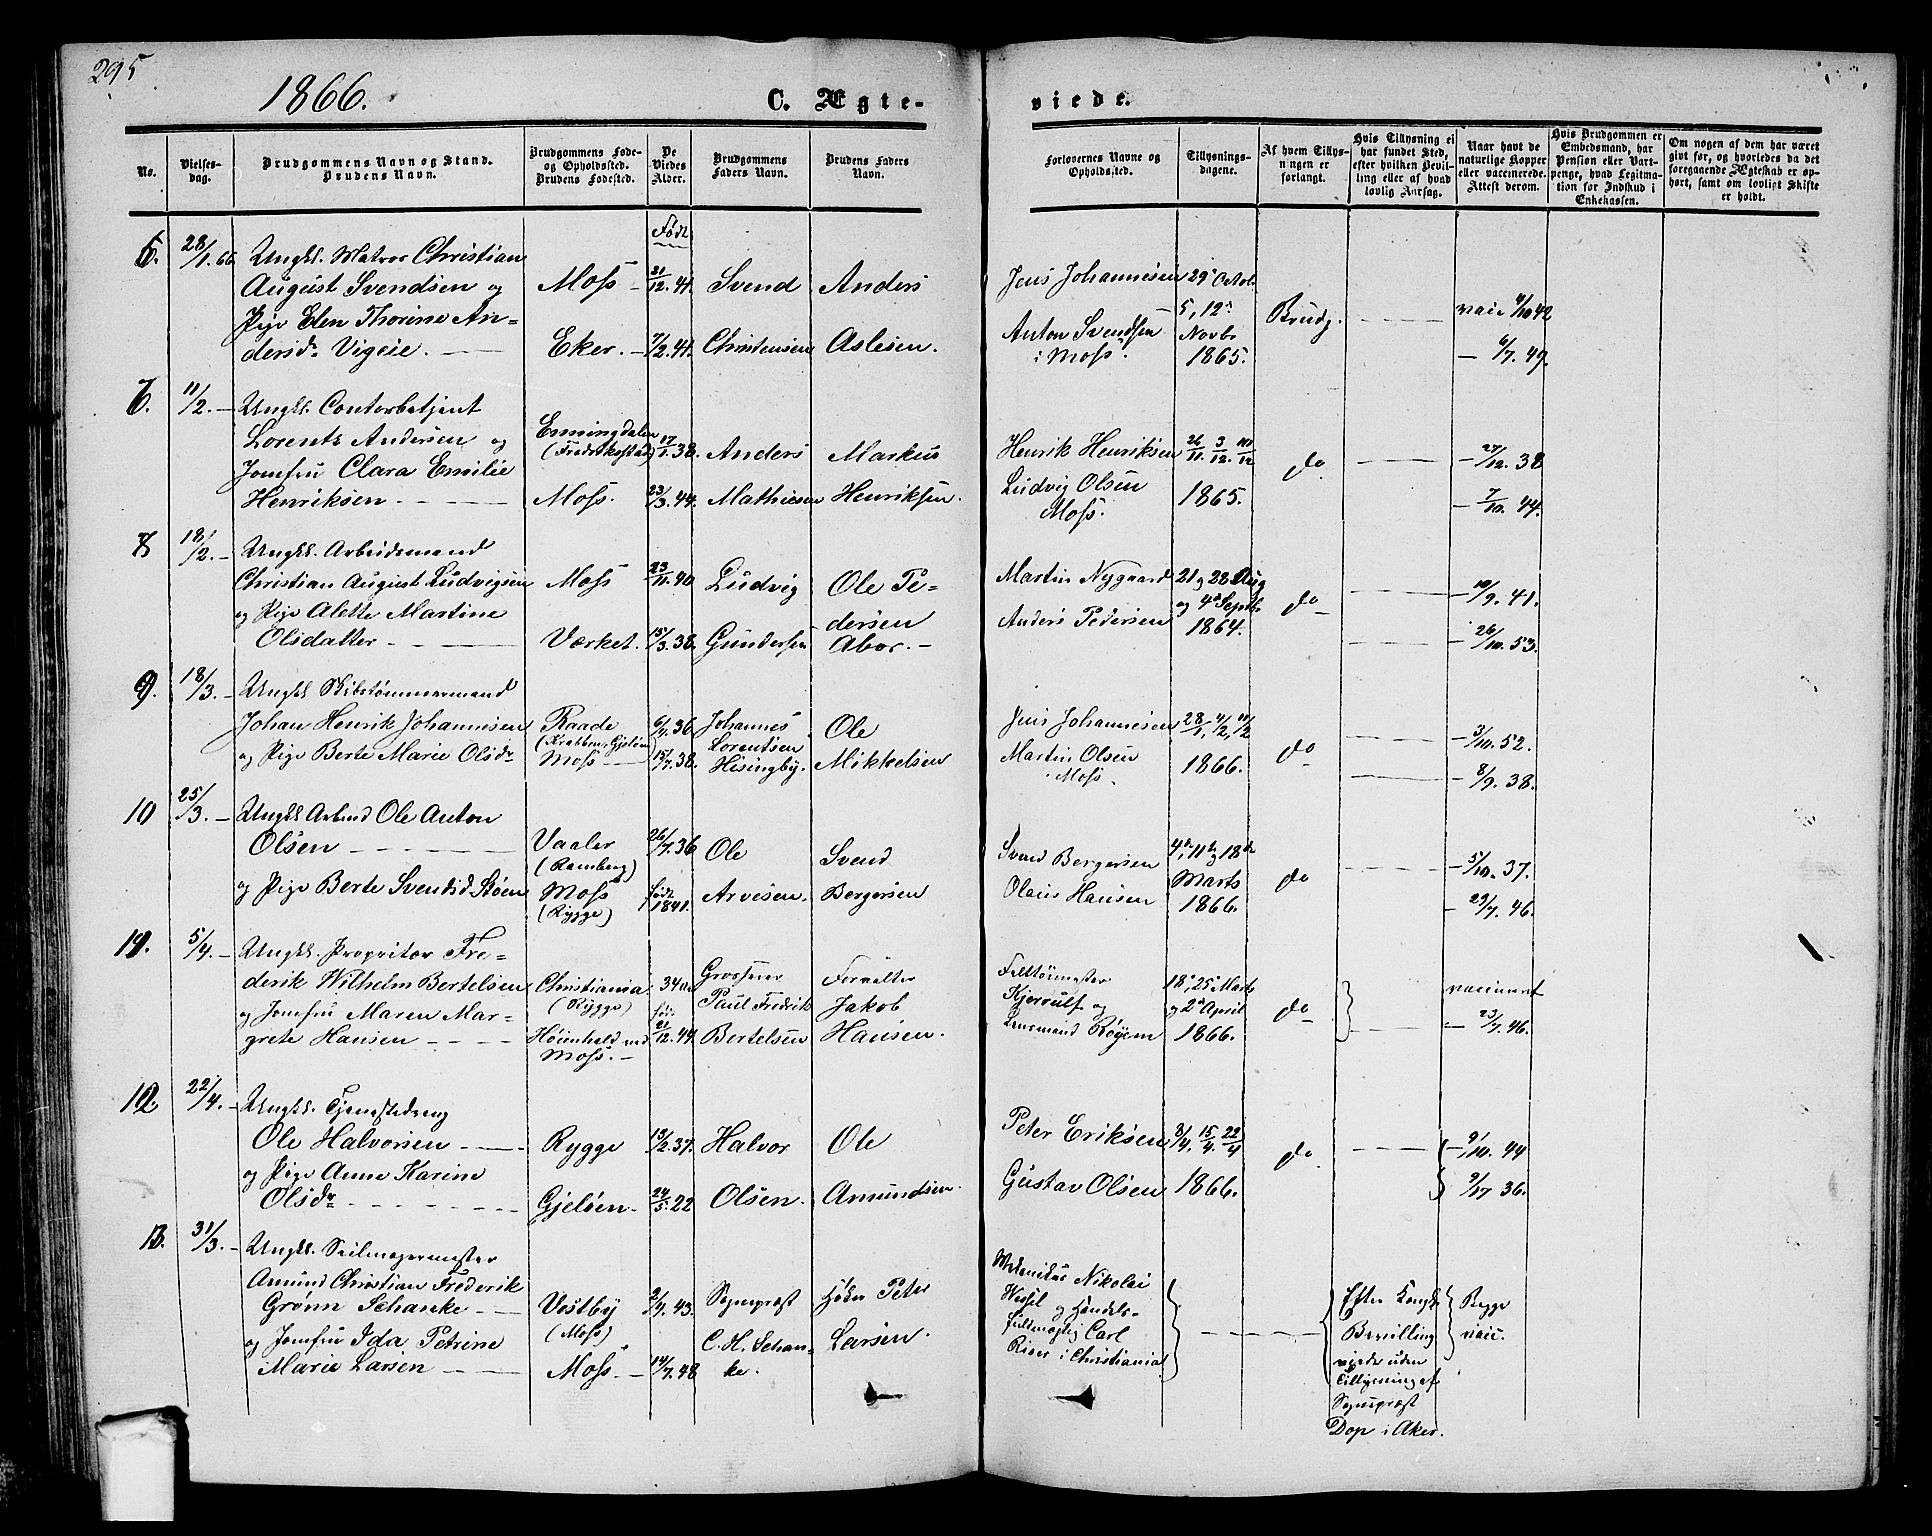 295
1866.
C. Ægte-
viede.
No.
Vielses-
dag.
Brudgommens Navn og Stand.
Brudens Navn.
Brudgommens Føde-
og Opholdssted.
Brudens Fødested.
De
Viedes
Alder.
Brudgommens
Faders Navn.
Brudens Faders
Navn.
Forlovernes Navne og
Opholdssted.
Tillysnings-
dagene.
Af hvem Tillys-
ningen er
forlangt.
Hvis Tillysning ei
har fundet Sted,
efter hvilken Bevil-
ling eller af hvad
lovlig Aarsag.
Naar havt de
naturlige Kopper
eller vaccinerede.
Attest derom.
Hvis Brudgommen er
Embedsmand, har
Pension eller Vart-
penge, hvad Legitima-
tion for Indskud i
Enkekassen.
Om nogen af dem har været
gift før, og hvorledes da det
foregaaende Ægteskab er op-
hørt, samt om lovligt Skifte
er holdt.
28/1. 66 Ungkl. Matros Christian
August Svendsen og
Pige Elen Thorine An-
dersdr Vigeie.
Moss
Eker.
Født
21/12. 41.
7/2. 41.
Svend
Christensen
Anders
Aslesen.
Jens Johannesen
Anton Svendsen
i Moss.
29 Octob.
5, 12
Novbr
1865.
Brudg.
vacc 4/10 42
6/7. 49.
11/2. Ungkl. Contorbetjent
Lorentz Andersen og
Jomfru Clara Emilie
Henriksen
Enningdalen
(Fredrikstad)
Moss.
17/1. 38.
23/3. 44.
Anders
Mathiesen
Markus
Henriksen.
Henrik Henriksen
Ludvig Olsen
Moss.
26/11. 3/12. 10/12
1865.
do
27/12. 38
7/10. 44.
8 18/2. Ungkl. Arbeidsmand
Christian August Ludvigsen
og Pige Alette Martine
Olsdatter
Moss
Værket.
23/11. 40
15/3. 38.
Ludvig
Gundersen
Ole Pe-
dersen
Abor.
Martin Nygaard
Anders Pedersen
21 og 28 Aug
og 4de Septb.
1864.
do
19/9. 41.
26/10. 53.
9. 18/3. Ungkl Skibstømmermand
Johan Henrik Johannesen
og Pige Berte Marie Olsdr
Raade
Moss
6/4. 36
15/7. 38.
Johannes
Lorentsen
Hisingby.
Ole
Mikkelsen
Jens Johannesen
Martin Olsen
i Moss.
28/1, 4/2, 11/2
1866.
do
3/10. 52.
8/9. 38.
10 25/3. Ungkl Arbmd Ole Anton
Olsen
og Pige Berte Svendsd. Støen
Vaaler
(Ramberg)
Moss
(Rygge)
26/7. 36
født
1841.
Ole
Arvesen.
Svend
Bergersen
Svend Bergersen
Olaus Hansen
4de, 11te og 18de
Marts
1866.
do
5/10. 37.
29/7. 46.
11. 5/4. Ungkl. Propritær Fre-
derik Wilhelm Bertelsen
og Jomfru Maren Mar-
grete Hansen
Christiania
(Rygge)
Moss.
34 Aar
21/12. 44.
Grosserer
Paul Fredrik
Bertelsen
Forvalter
Jakob
Hansen.
Kjerulf og
Lensmand Røyem
18, 25 Marts
og 2d April
1866.
do
vaccineret
23/7. 46.
12 22/4. Ungkl. Tjenestedreng
Ole Halvorsen
og Pige Anne Karine
Olsdr
Rygge
Gjeløen
13/2. 37.
24/5. 22
Halvor
Olsen.
Ole
Amundsen.
Peter Eriksen
Gustav Olsen
8/4, 15/4. 22/4
1866.
do
9/10. 44
9/17 36.
13. 31/3. Ungkl. Seilmagermester
Amund Christian Frederik
Grønn Schanke
og Jomfru Ida Petrine
Marie Larsen
Vestby
(Moss)
Moss.
2/7. 43.
14/7. 48
Sognepræst
C. H. Schan-
ke.
Peter
Larsen.
Mekanikus Nikolai
Wessel og Handels-
fuldmægtig Carl
Riser i Christiania
Efter Kongl.
Bevilling
viede uden
Tillysning af
Sognepræst
Dop i Aker.
Begge
vacc.